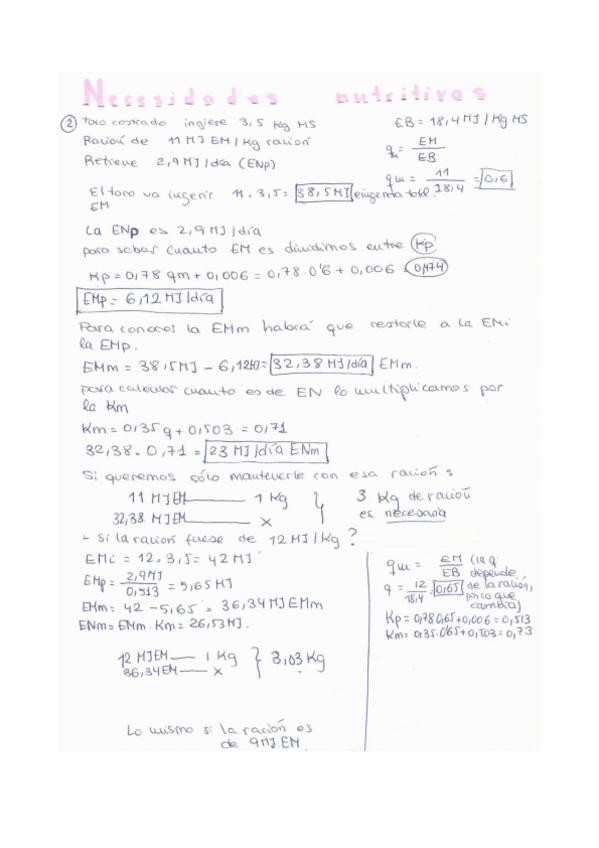 Necesidades nutritivas
② Toro castrado ingiere 3,5 Kg MS
EB = 18,4 MJ / Kg MS
Ración de 11 MJ EM / Kg ración
qm = EM / EB
Retiene 2,9 MJ/día (ENp)
qm = 11 / 18,4 = 0,6
El toro va ingerir 11 . 3,5 = 38,5 MJ energía total.
EM
La ENp es 2,9 MJ/día
para saber cuanto EM es dividimos entre Kp
Kp = 0,78 qm + 0,006 = 0,78 . 0'6 + 0,006 = 0,474
EMp = 6,12 MJ/día
Para conocer la EMm habrá que restarle a la EMi
la EMp.
EMm = 38,5 MJ - 6,12 = 32,38 MJ/día EMm.
para calcular cuanto es de EN lo multiplicamos por
la Km
Km = 0,35 q + 0,503 = 0,71
32,38 . 0,71 = 23 MJ/día ENm
Si queremos sólo mantenerle con esa ración :
11 MJ EM — 1 Kg
32,38 MJ EM — x
3 Kg de ración
es necesaria
- Si la ración fuese de 12 MJ / Kg ?
EMi = 12 . 3,5 = 42 MJ
EMp = 2,9 MJ / 0,513 = 5,65 MJ
EMm = 42 - 5,65 = 36,34 MJ EMm
ENm = EMm . Km = 26,53 MJ.
12 MJ EM — 1 Kg
36,34 EM — x
3,03 Kg
Lo mismo si la ración es
de 9 MJ EM
qm = EM / EB (la q
depende
q = 12 / 18,4 = 0,65 de la ración,
por lo que
cambia)
Kp = 0,78 0,65 + 0,006 = 0,513
Km = 0,35 . 0'65 + 0,503 = 0,73